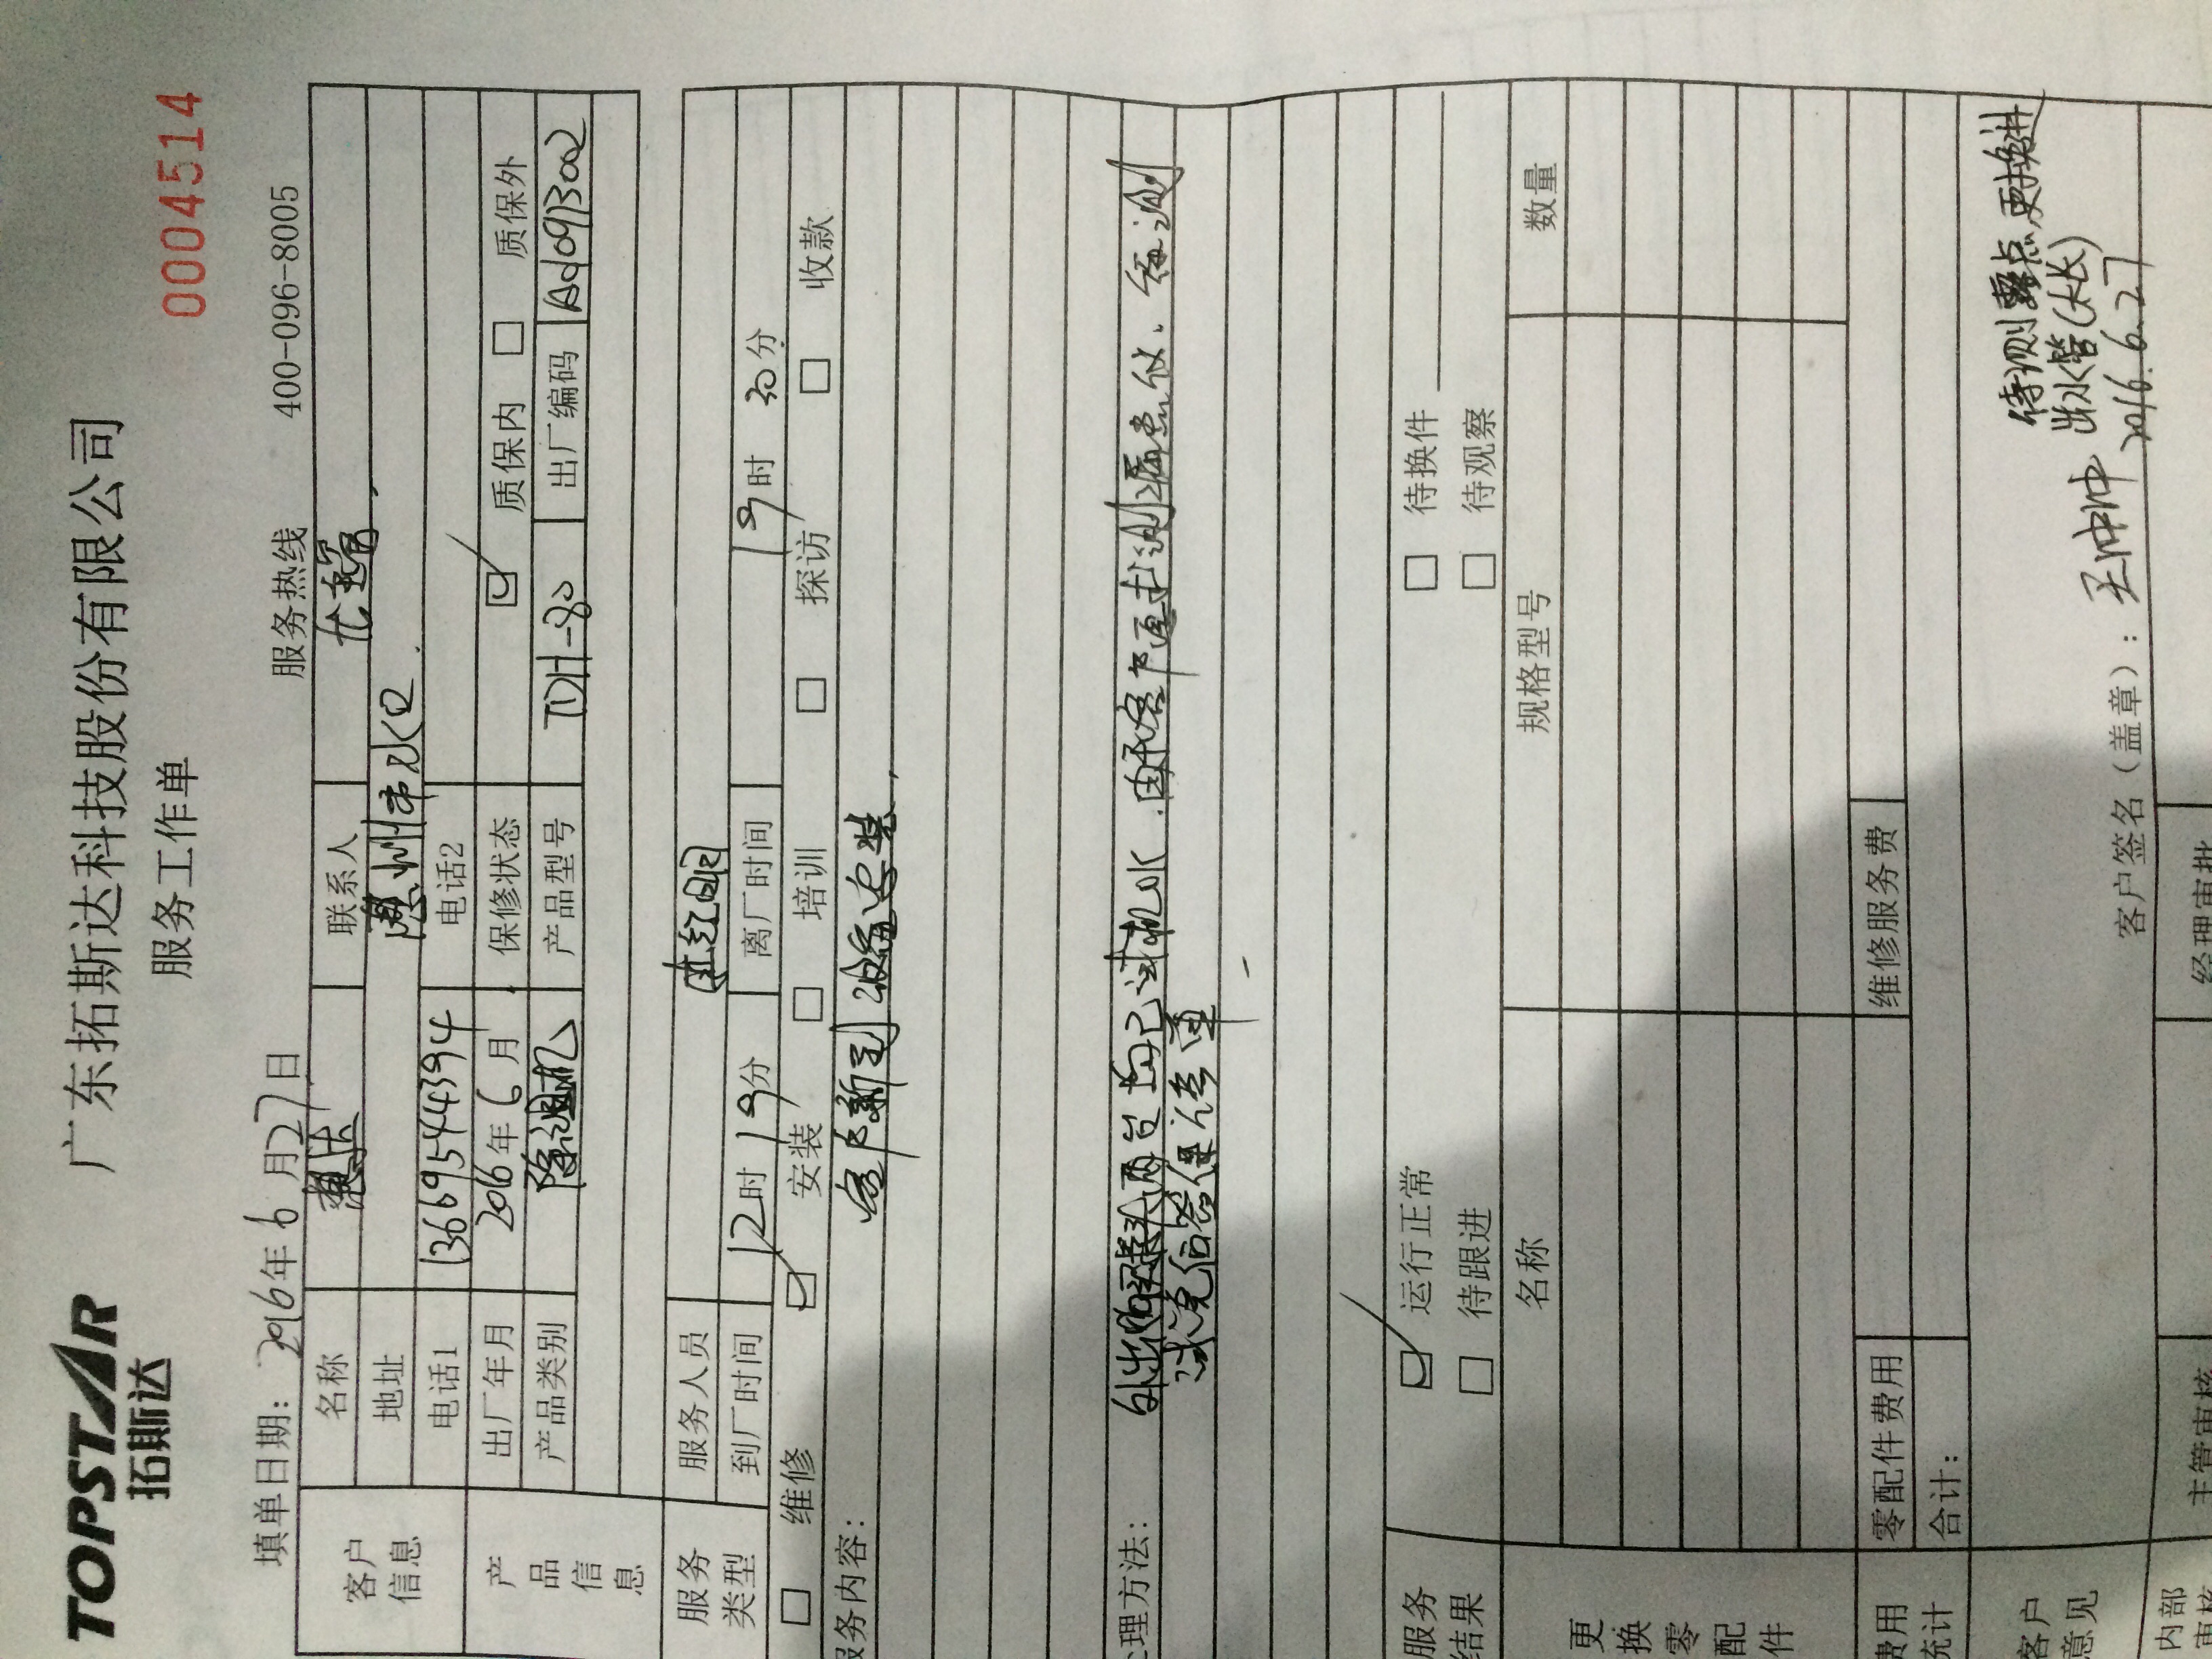 TOPSTAR
拓斯达
广东拓斯达科技股份有限公司
服务工作单
0004514
填单日期: 2016年6月27日
服务热线 400-096-8005
客户信息
名称 联系人 尤
地址 惠州市水口
电话1 13669544394 电话2
产品信息
出厂年月 2016年6月 保修状态 质保内 质保外
产品类别 除湿机 产品型号 TDH-80 出厂编码
服务类型
服务人员 红
到厂时间 12时19分 离厂时间 19时30分
维修 安装 培训 探访 收款
服务内容: 客户新到 安装.
处理方法: 两台均已试机OK. 因客户 测露点仪. 待测
试完后
服务结果
运行正常 待换件
待跟进 待观察
更换零配件
名称 规格型号 数量
费用统计
零配件费用 维修服务费
合计:
客户意见
待测露点更换进
出水管(太长)
客户签名(盖章): 王冲冲 2016.6.27
内部审核
主管审核 经理审批